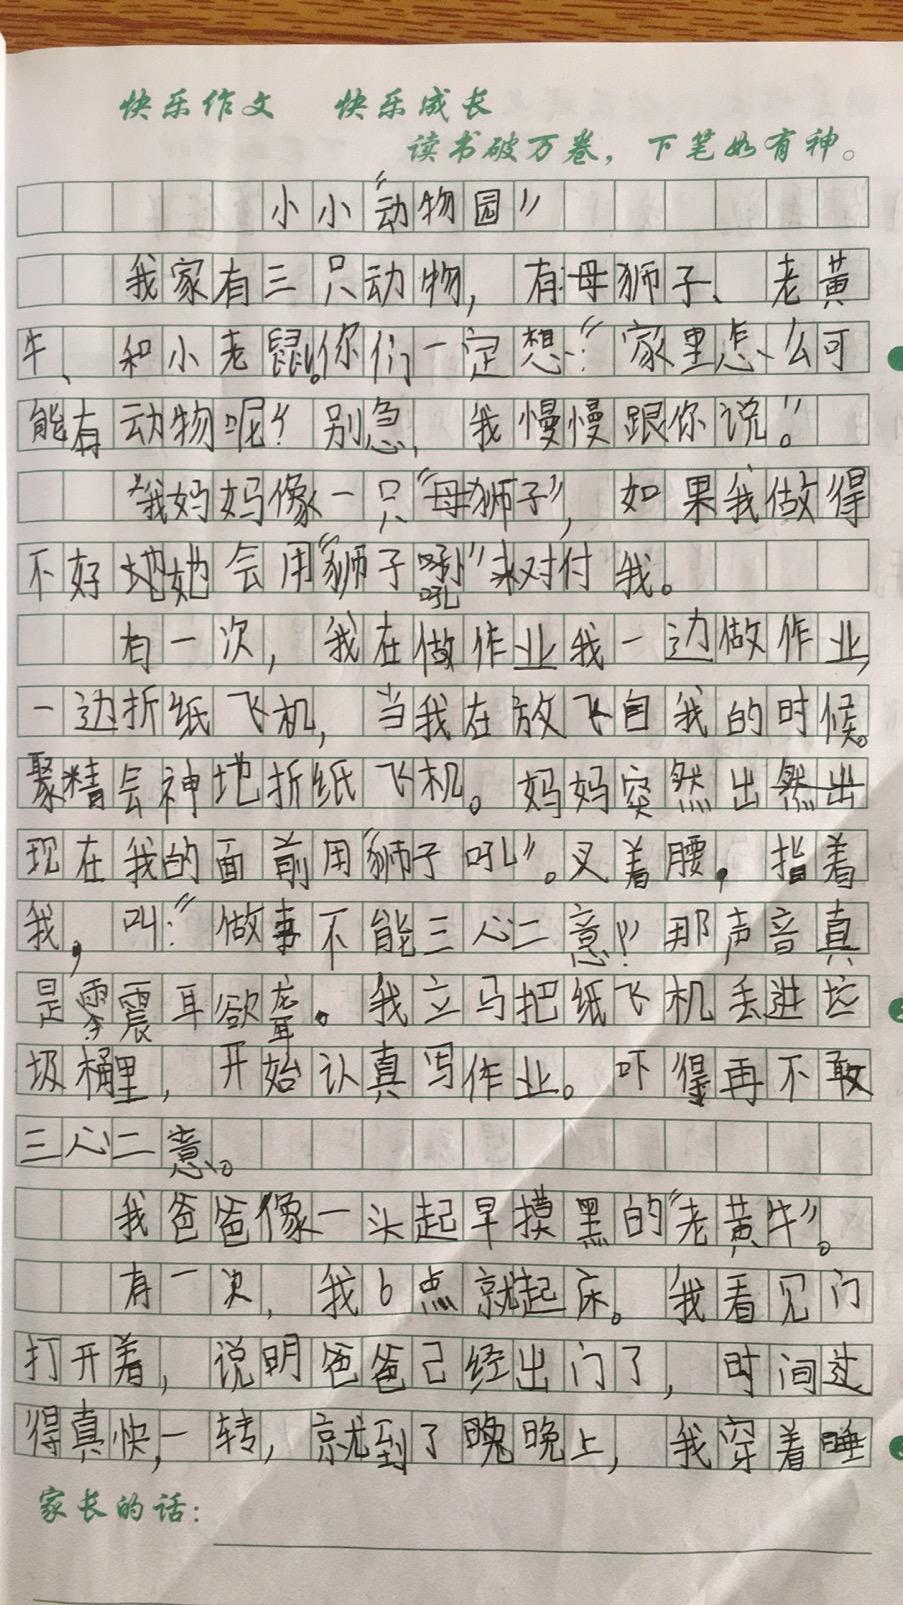 快乐作文 快乐成长
读书破万卷，下笔如有神。
小小“动物园”
我家有三只动物，有母狮子、老黄
牛、和小老鼠。你们一定想：“家里怎么可
能有动物呢？别急，我慢慢跟你说。”
“我妈妈像一只“母狮子”，如果我做得
不好地她会用“狮子吼”来对付我。
有一次，我在做作业我一边做作业，
一边折纸飞机，当我在放飞自我的时候。
聚精会神地折纸飞机。妈妈突然出然出
现在我的面前用“狮子吼”。叉着腰，指着
我，叫：“做事不能三心二意！”那声音真
是震耳欲聋。我立马把纸飞机丢进垃
圾桶里，开始认真写作业。吓得再不敢
三心二意。
我爸爸像一头起早摸黑的“老黄牛”。
有一次，我6点就起床。我看见门
打开着，说明爸爸已经出门了，时间过
得真快，一转，就到了晚晚上，我穿着睡
家长的话：